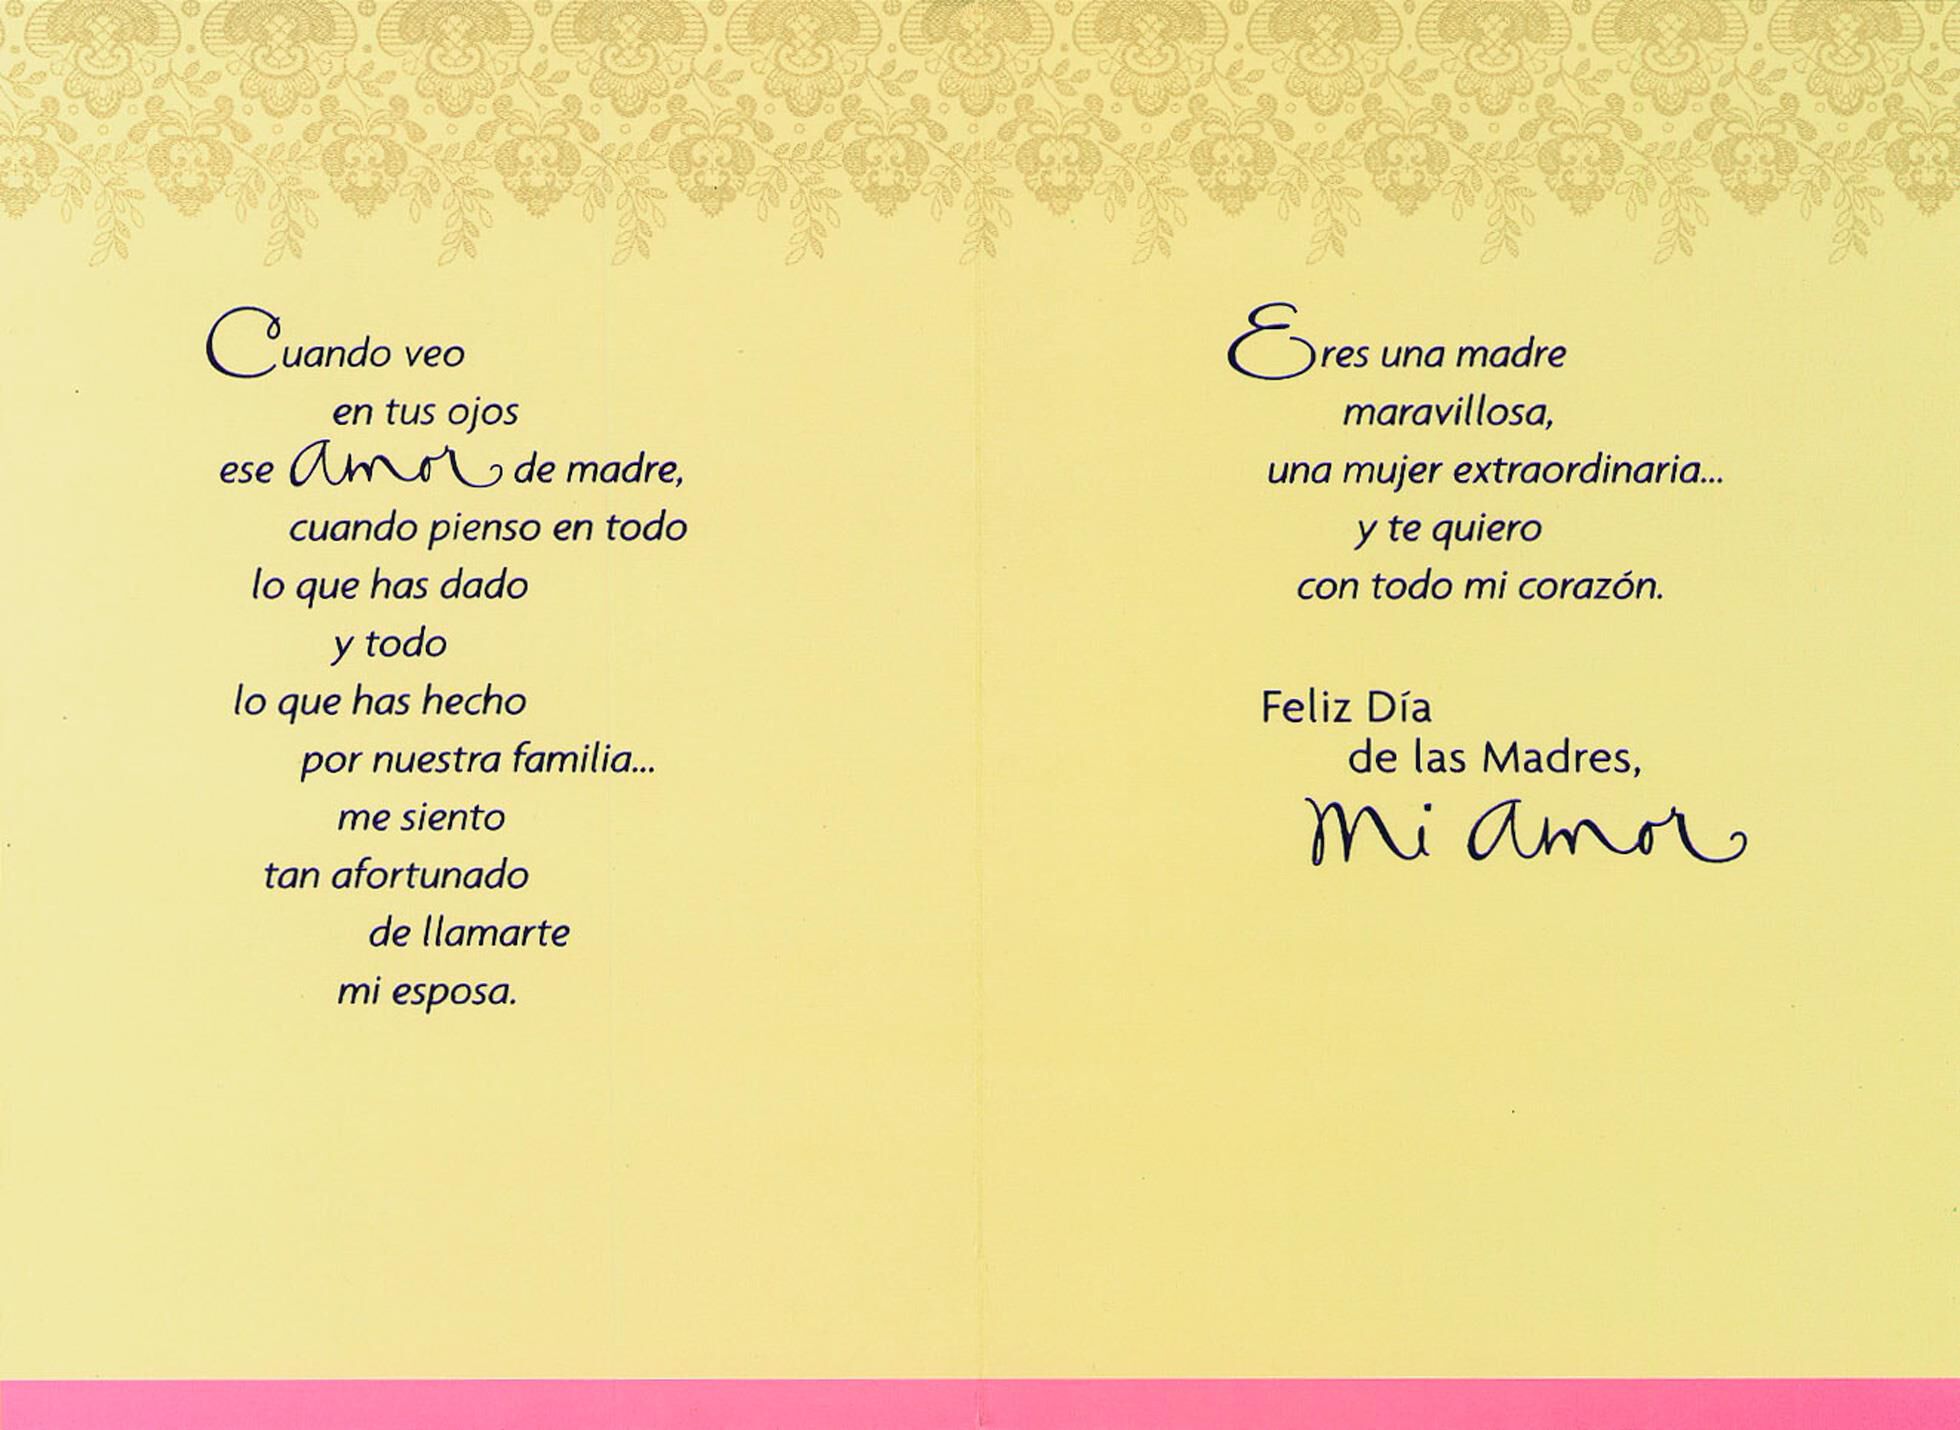 Cuando veo
en tus ojos
ese amor de madre,
cuando pienso en todo
lo que has dado
y todo
lo que has hecho
por nuestra familia...
me siento
tan afortunado
de llamarte
mi esposa.
Eres una madre
maravillosa,
una mujer extraordinaria...
y te quiero
con todo mi corazón.
Feliz Día
de las Madres,
Mi Amor